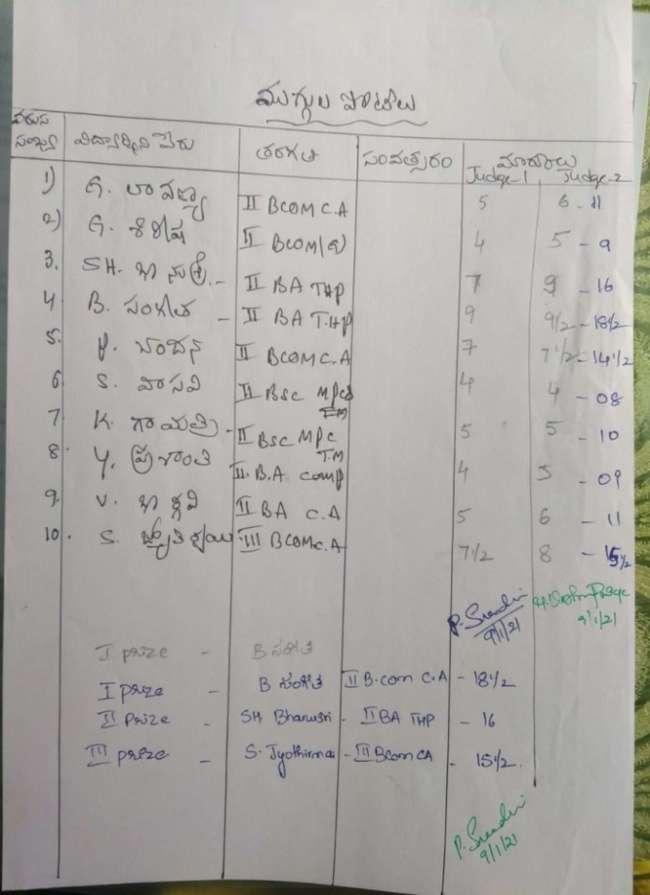 ముగ్గుల పోటీలు
వరుస సంఖ్య విద్యార్థిని పేరు తరగతి సంవత్సరం మార్కులు
Judge-1 Judge-2
1) G. లావణ్య II BCOM C.A 5 6 - 11
2) G. శిరీష II BCOM(g) 4 5 - 9
3. SH. భానుశ్రీ - II BA THP 7 9 - 16
4. B. సంగీత - II BA T.HP 9 9 1/2 - 18 1/2
5. P. చందన II BCOM C.A 7 7 1/2 - 14 1/2
6. S. వాసవి II BSC MPCS EM 4 4 - 08
7. K. గాయత్రి - II BSC MPC TM 5 5 - 10
8. Y. ప్రశాంతి II. B.A Comp 4 5 - 09
9. V. భార్గవి II BA C.A 5 6 - 11
10. S. జ్యోతిర్మయి III BCOM C.A 7 1/2 8 - 15 1/2
9/1/21 9/1/21
I prize - B సంగీత
I prize - B సంగీత II B.com C.A - 18 1/2
II prize - SH Bhanusri - II BA THP - 16
III prize - S. Jyothirmai - III Bcom CA - 15 1/2.
9/1/21